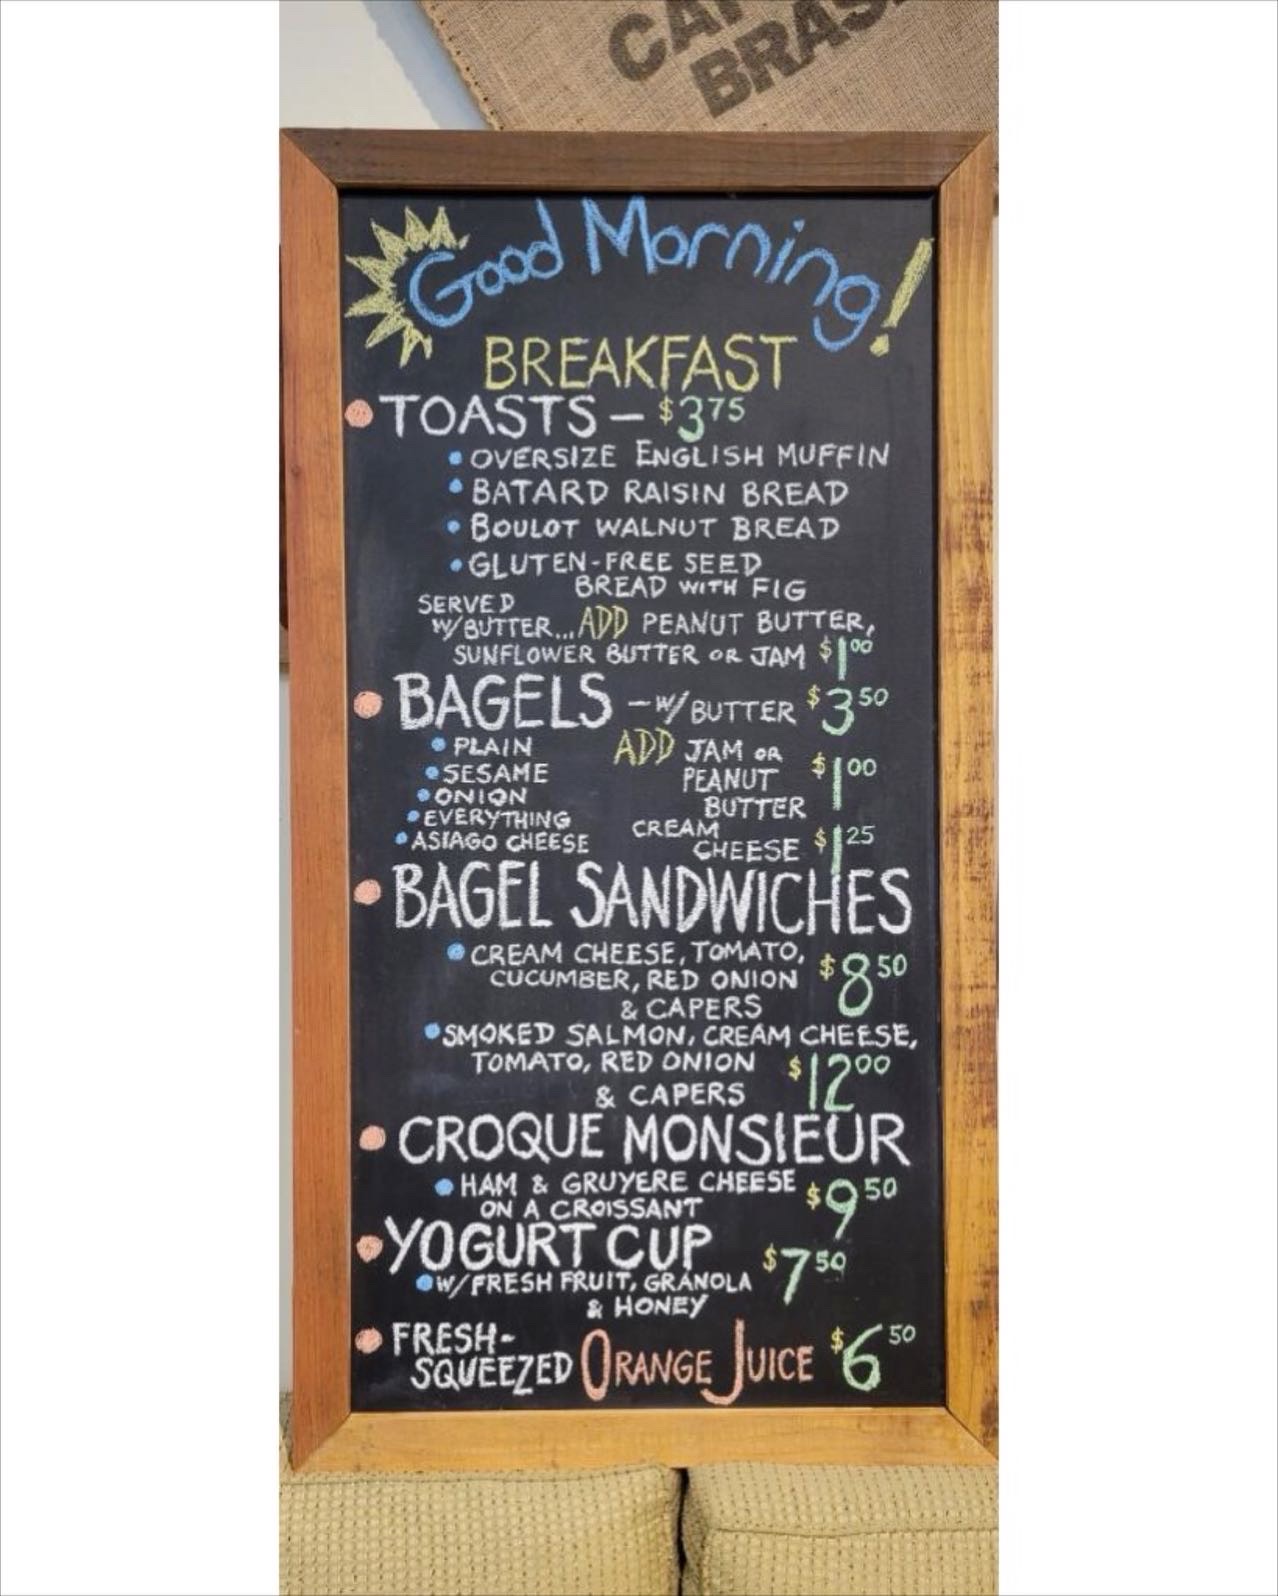 BRAS
Good Morning!
BREAKFAST
TOASTS – $3.75
• OVERSIZE ENGLISH MUFFIN
• BATARD RAISIN BREAD
• BOULOT WALNUT BREAD
• GLUTEN-FREE SEED
BREAD WITH FIG
SERVED
W/BUTTER... ADD PEANUT BUTTER,
SUNFLOWER BUTTER OR JAM $1.00
BAGELS – W/ BUTTER $3.50
• PLAIN ADD JAM OR
• SESAME PEANUT $1.00
• ONION BUTTER
• EVERYTHING CREAM
• ASIAGO CHEESE CHEESE $1.25
BAGEL SANDWICHES
• CREAM CHEESE, TOMATO,
CUCUMBER, RED ONION $8.50
& CAPERS
• SMOKED SALMON, CREAM CHEESE,
TOMATO, RED ONION $12.00
& CAPERS
CROQUE MONSIEUR
• HAM & GRUYERE CHEESE $9.50
ON A CROISSANT
YOGURT CUP $7.50
• W/FRESH FRUIT, GRANOLA
& HONEY
FRESH-
SQUEEZED ORANGE JUICE $6.50